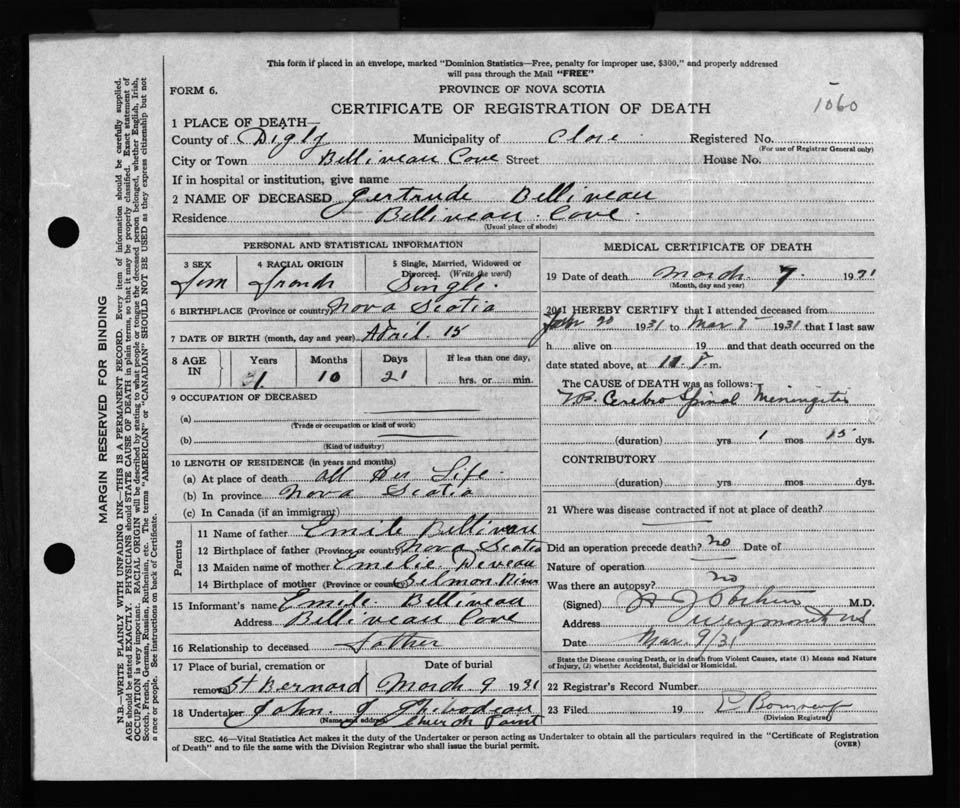 This form if placed in an envelope, marked "Dominion Statistics—Free, penalty for improper use, $300," and properly addressed
will pass through the Mail "FREE"
FORM 6.
PROVINCE OF NOVA SCOTIA
1060
CERTIFICATE OF REGISTRATION OF DEATH
1 PLACE OF DEATH—
County of Digby Municipality of Clare Registered No.
(For use of Registrar General only)
City or Town Belliveau Cove Street House No.
If in hospital or institution, give name
2 NAME OF DECEASED Gertrude Belliveau
Residence Belliveau Cove.
(Usual place of abode)
PERSONAL AND STATISTICAL INFORMATION
3 SEX 4 RACIAL ORIGIN 5 Single, Married, Widowed or
Divorced. (Write the word)
Fem French Single.
6 BIRTHPLACE (Province or country) Nova Scotia
7 DATE OF BIRTH (month, day and year) April 15
8 AGE IN Years Months Days If less than one day,
31 10 21 hrs. or min.
9 OCCUPATION OF DECEASED
(a)
(Trade or occupation or kind of work)
(b)
(Kind of industry)
10 LENGTH OF RESIDENCE (in years and months)
(a) At place of death all Her Life.
(b) In province Nova Scotia
(c) In Canada (if an immigrant)
Parents
11 Name of father Emile Belliveau
12 Birthplace of father (Province or country) Nova Scotia
13 Maiden name of mother Emelie Deveau
14 Birthplace of mother (Province or country) Salmon River
15 Informant's name Emile Belliveau
Address Belliveau Cove
16 Relationship to deceased father
17 Place of burial, cremation or Date of burial
removal St Bernard March 9 1931
18 Undertaker John J Thibodeau
(Name and address) Church Point
MEDICAL CERTIFICATE OF DEATH
19 Date of death March 7 1931
(Month, day and year)
20 I HEREBY CERTIFY that I attended deceased from
20 1931 to Mar 7 1931 that I last saw
h alive on 19 and that death occurred on the
date stated above, at 11 P. m.
The CAUSE of DEATH was as follows:
TB Cerebro Spinal Meningitis
(duration) yrs 1 mos 15 dys.
CONTRIBUTORY
(duration) yrs. mos. dys.
21 Where was disease contracted if not at place of death?
Did an operation precede death? no Date of
Nature of operation
Was there an autopsy? no
(Signed) M.D.
Address Weymouth NS
Date Mar 9/31
State the Disease causing Death, or in death from Violent Causes, state (1) Means and Nature
of Injury, (2) whether Accidental, Suicidal or Homicidal.
22 Registrar's Record Number
23 Filed 19
(Division Registrar)
SEC. 46—Vital Statistics Act makes it the duty of the Undertaker or person acting as Undertaker to obtain all the particulars required in the "Certificate of Registration
of Death" and to file the same with the Division Registrar who shall issue the burial permit.
(OVER)
MARGIN RESERVED FOR BINDING
N.B.—WRITE PLAINLY WITH UNFADING INK—THIS IS A PERMANENT RECORD. Every item of information should be carefully supplied.
AGE should be stated EXACTLY. PHYSICIANS should STATE CAUSE OF DEATH in plain terms, so that it may be properly classified. Exact statement of
OCCUPATION is very important. RACIAL ORIGIN will be described by stating to what people or tongue the deceased person belonged, whether English, Irish,
Scotch, French, German, Russian, Ruthenian, etc. The terms "AMERICAN" or "CANADIAN" SHOULD NOT BE USED as they express citizenship but not
a race or people. See instructions on back of Certificate.